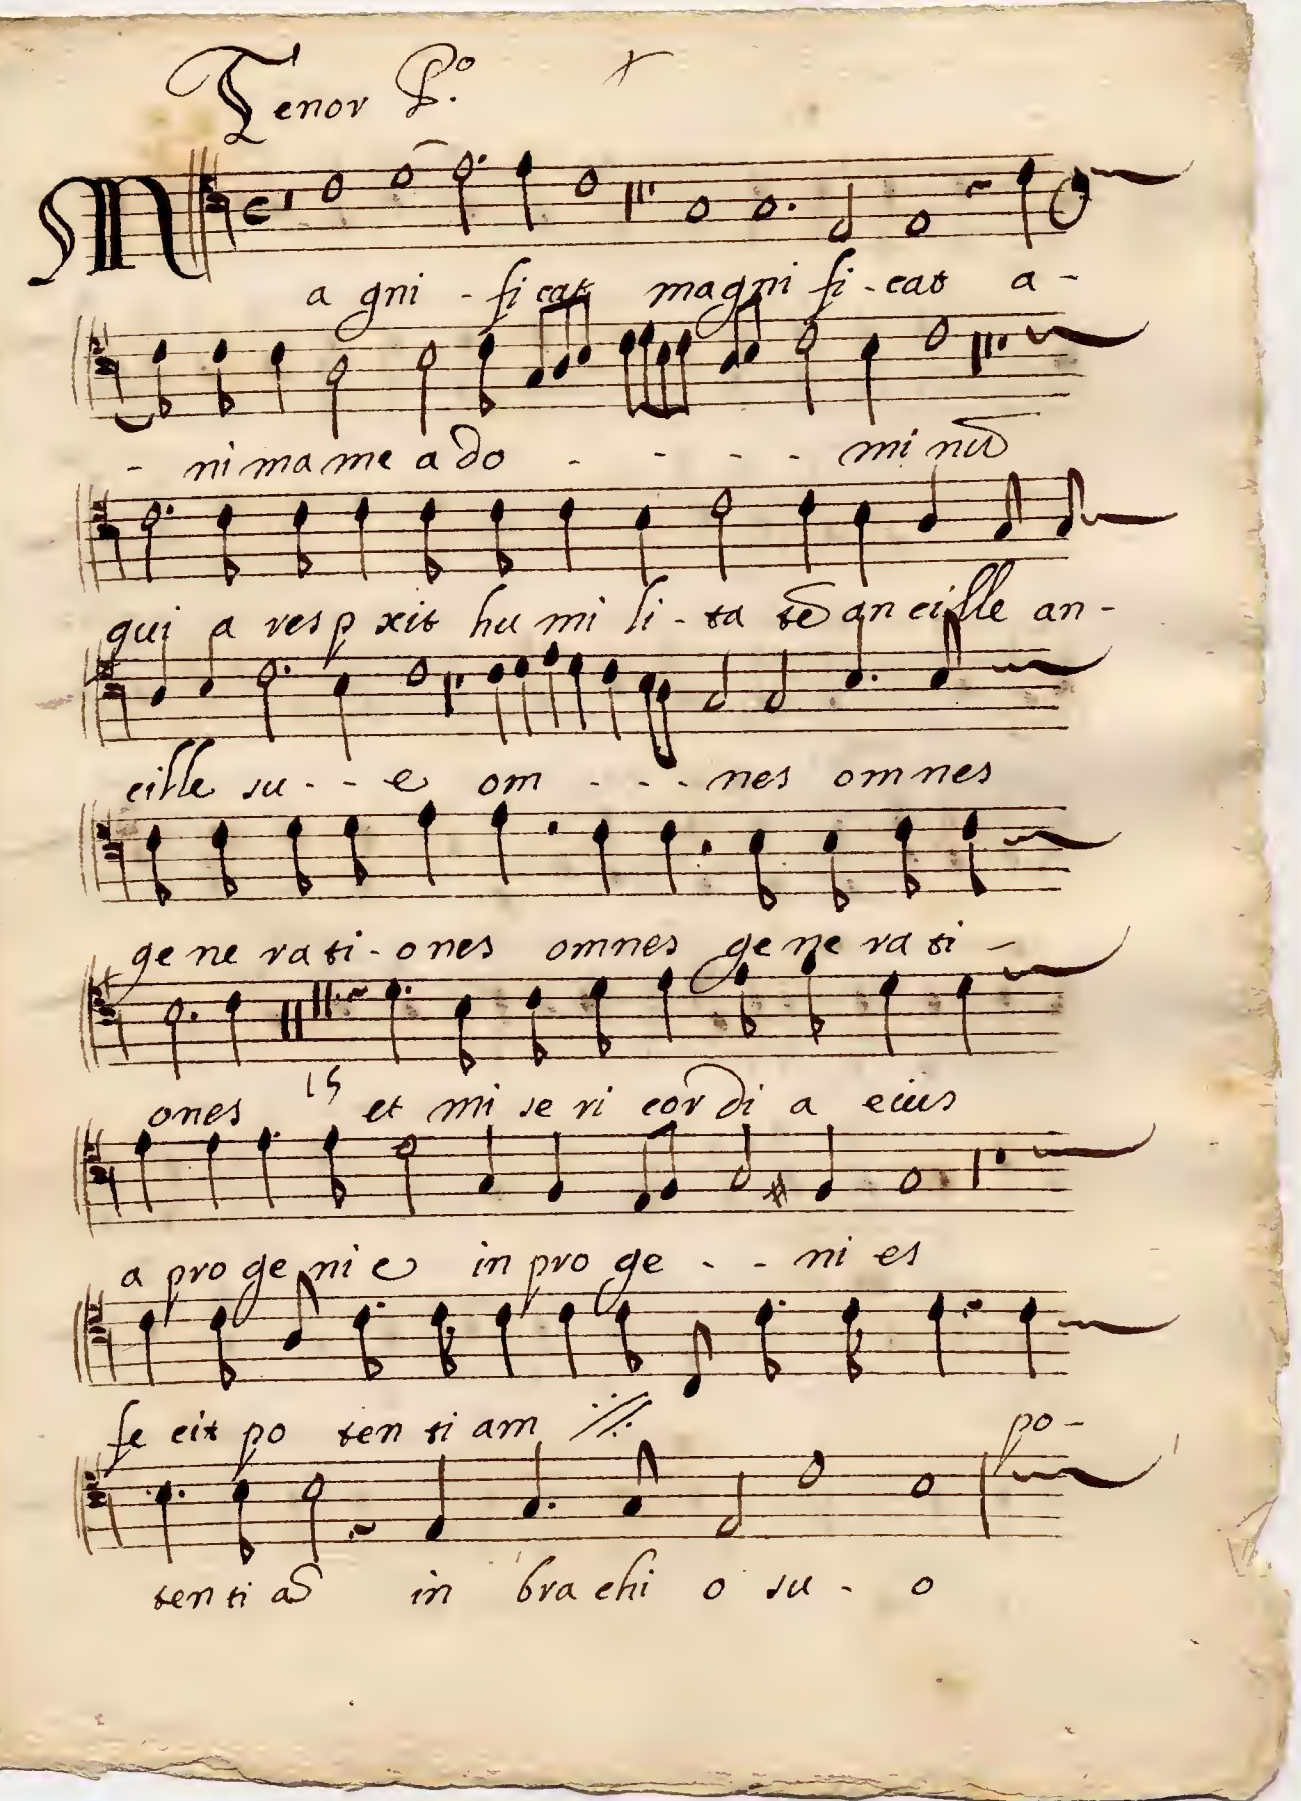 Tenor P.º
Magni - ficat magnifi - cat a -
- nima mea do - - - - minũ
quia respxit humili - ta tẽ ancille an -
cille su - - e om - - - nes omnes
generati - ones omnes generati -
ones 15 et misericordia eius
a progenie in proge - - nies
fecit potentiam ·//· po -
tentiã in brachio su - o